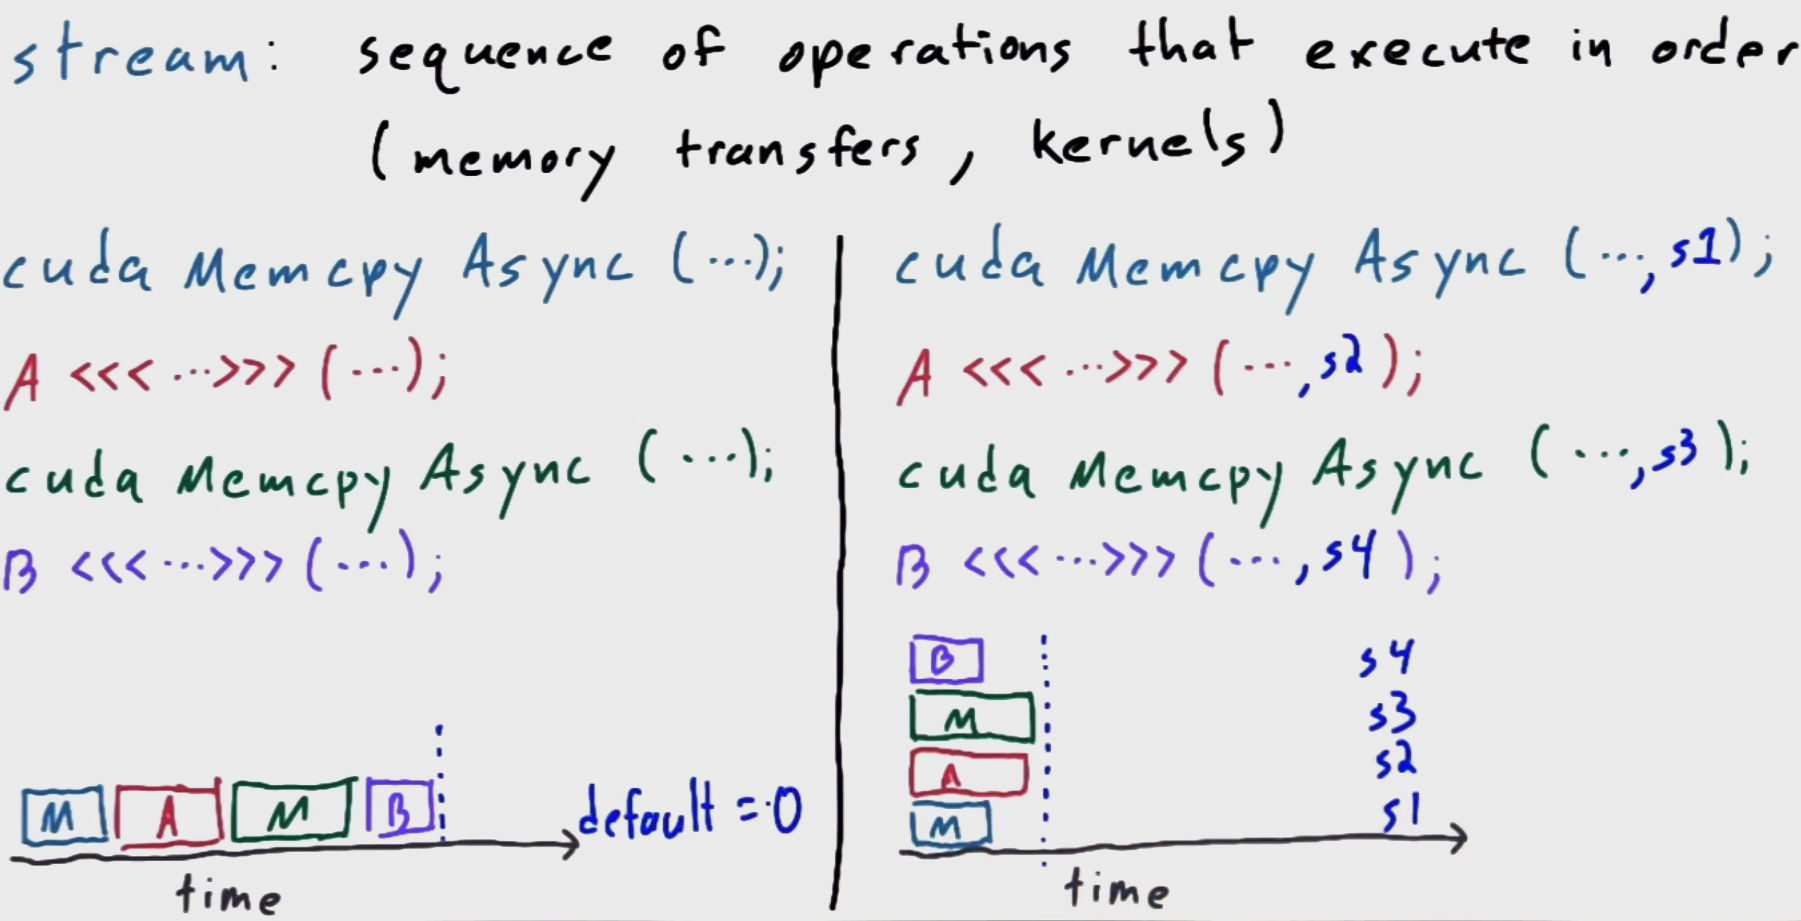 stream: sequence of operations that execute in order
(memory transfers, kernels)
cudaMemcpyAsync (...);
A <<< ... >>> (...);
cudaMemcpyAsync (...);
B <<< ... >>> (...);
M A M B
default = 0
time
cudaMemcpyAsync (..., s1);
A <<< ... >>> (..., s2);
cudaMemcpyAsync (..., s3);
B <<< ... >>> (..., s4);
B s4
M s3
A s2
M s1
time